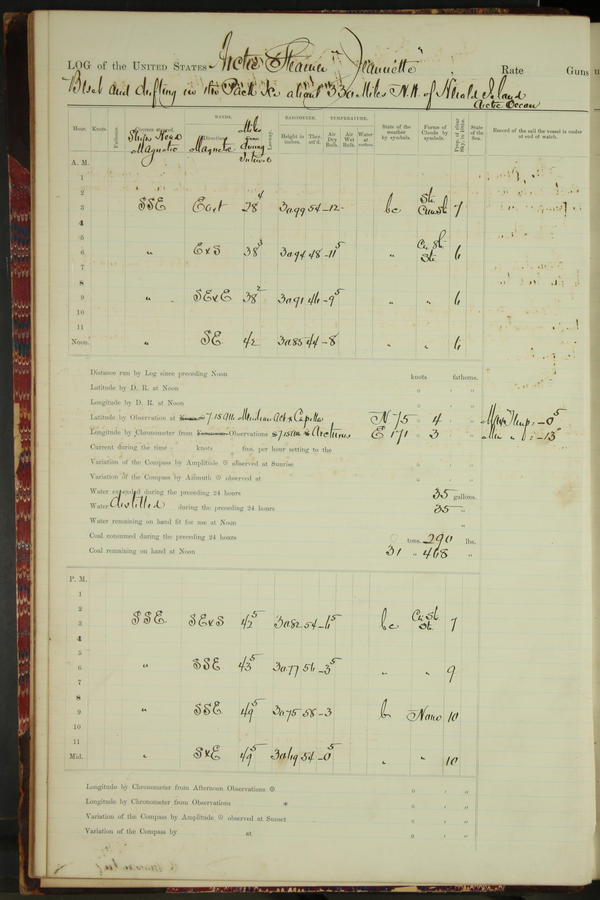 LOG of the UNITED STATES Arctic Steamer "Jeannette", Rate Guns
Beset and drifting in the Pack Ice about 330 Miles N.W. of Herald Island
Arctic Ocean
WINDS. BAROMETER. TEMPERATURE.
Hour. Knots. Fathoms. Ships Head Magnetic Direction Magnetic Miles during Leeway. Height in inches. Ther. att'd. Air Dry Bulb. Air Wet Bulb. Water at surface. State of the weather by symbols. Forms of Clouds by symbols. Prop. of clear Sky, in 10ths. State of the Sea. Record of the sail the vessel is under at end of watch.
A. M.
1
2
3 SSE East 28 4 30.99 54 -12 bc Str Cum St 7
4
5
6 " ExS 38 3 30.94 48 -11 5 " Ci St Str 6
7
8
9 " SExE 38 2 30.91 46 -9 5 " " 6
10
11
Noon. " SE 42 30.85 44 -8 " " 6
Distance run by Log since preceding Noon knots fathoms.
Latitude by D. R. at Noon ° ′ ″
Longitude by D. R. at Noon ° ′ ″
Latitude by Observation at 7.15 AM Meridian Alt * Capella N 75 4 Max Temp: -0 5
Longitude by Chronometer from Observations 7.15 AM * Arcturus E 171 3 Min " : -13
Current during the time knots fms. per hour setting to the
Variation of the Compass by Amplitude ☉ observed at Sunrise ° ′ ″
Variation of the Compass by Azimuth ☉ observed at ° ′ ″
Water expended during the preceding 24 hours 35 gallons.
Water distilled during the preceding 24 hours 35 "
Water remaining on hand fit for use at Noon "
Coal consumed during the preceding 24 hours 0 tons. 290 lbs.
Coal remaining on hand at Noon 31 " 468 "
P. M.
1
2
3 SSE SExS 42 5 30.82 54 -6 5 bc Ci St St. 7
4
5
6 " SSE 43 5 30.77 56 -3 5 " " 9
7
8
9 " SSE 49 5 30.75 58 -3 b None 10
10
11
Mid. " SxE 49 5 30.69 54 -0 5 " " 10
Longitude by Chronometer from Afternoon Observations ☉ ° ′ ″
Longitude by Chronometer from Observations * ° ′ ″
Variation of the Compass by Amplitude ☉ observed at Sunset ° ′ ″
Variation of the Compass by at ° ′ ″